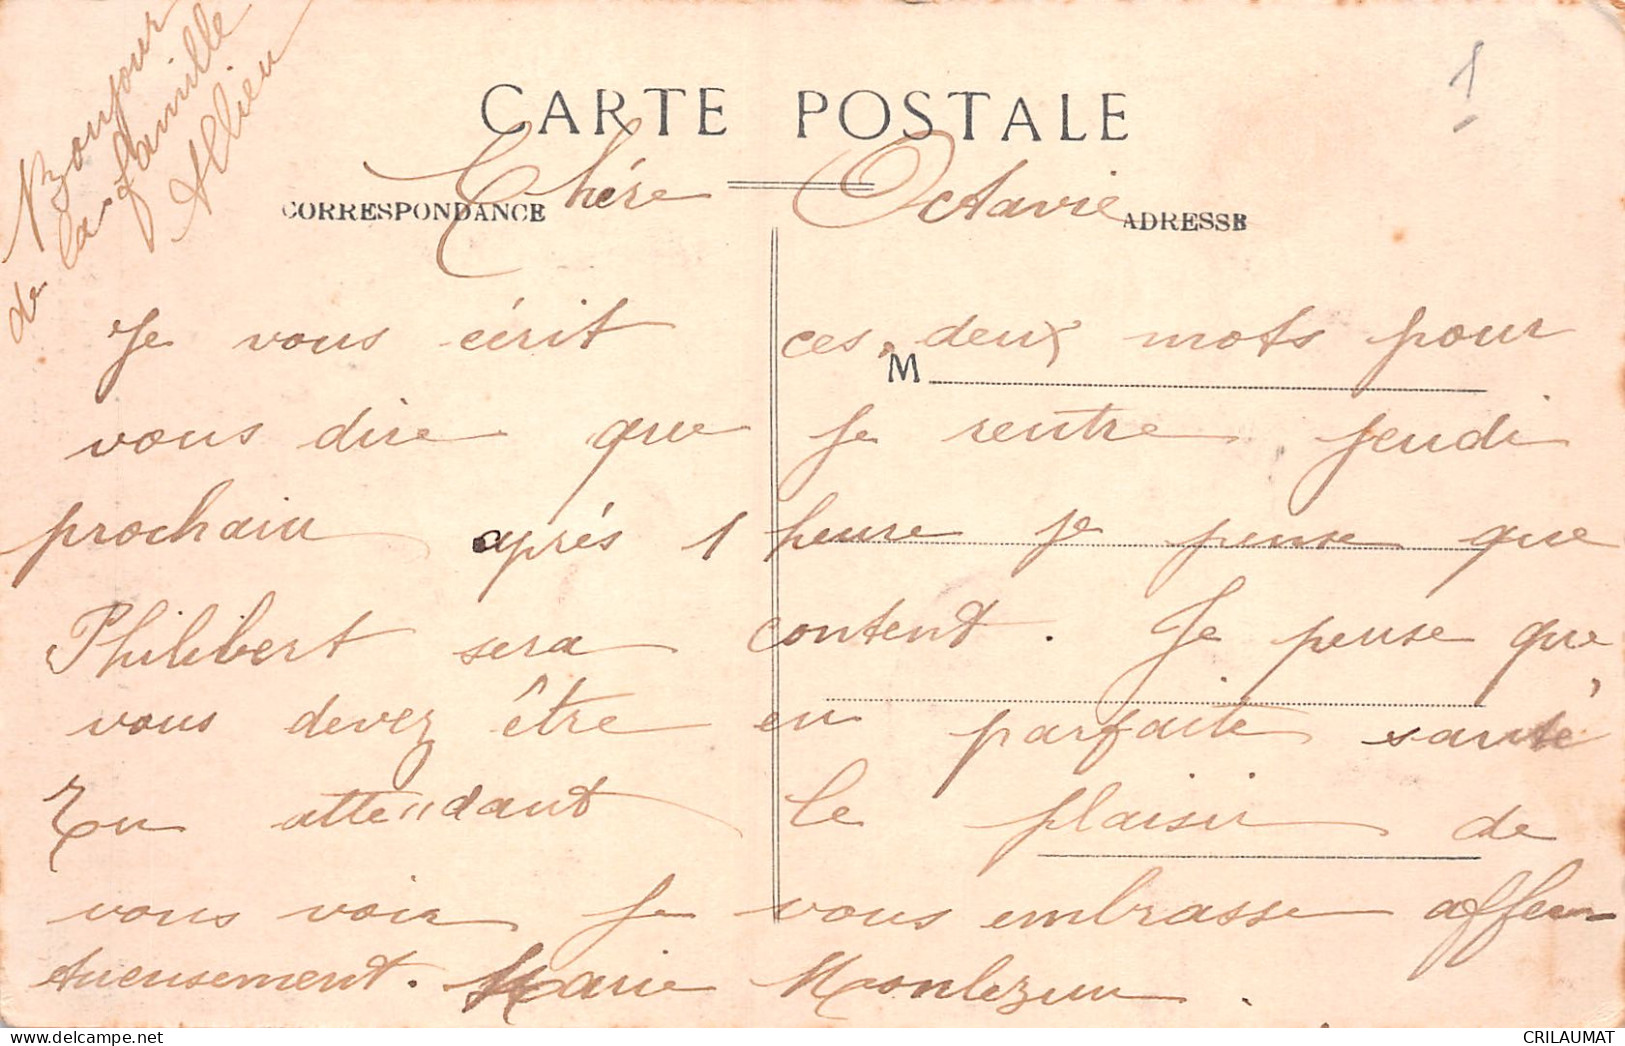 Bonjour
de la famille
CARTE POSTALE
1
Chére Octavie
CORRESPONDANCE
ADRESSE
Je vous écrit ces deux mots pour
M
vous dire que je rentre jeudi
prochain après 1 heure je pense que
Philibert sera content. Je pense que
vous devez être en parfaite santé,
En attendant le plaisir de
vous voir je vous embrasse affec-
tueusement. Marie Monlezun.
CRILAUMAT